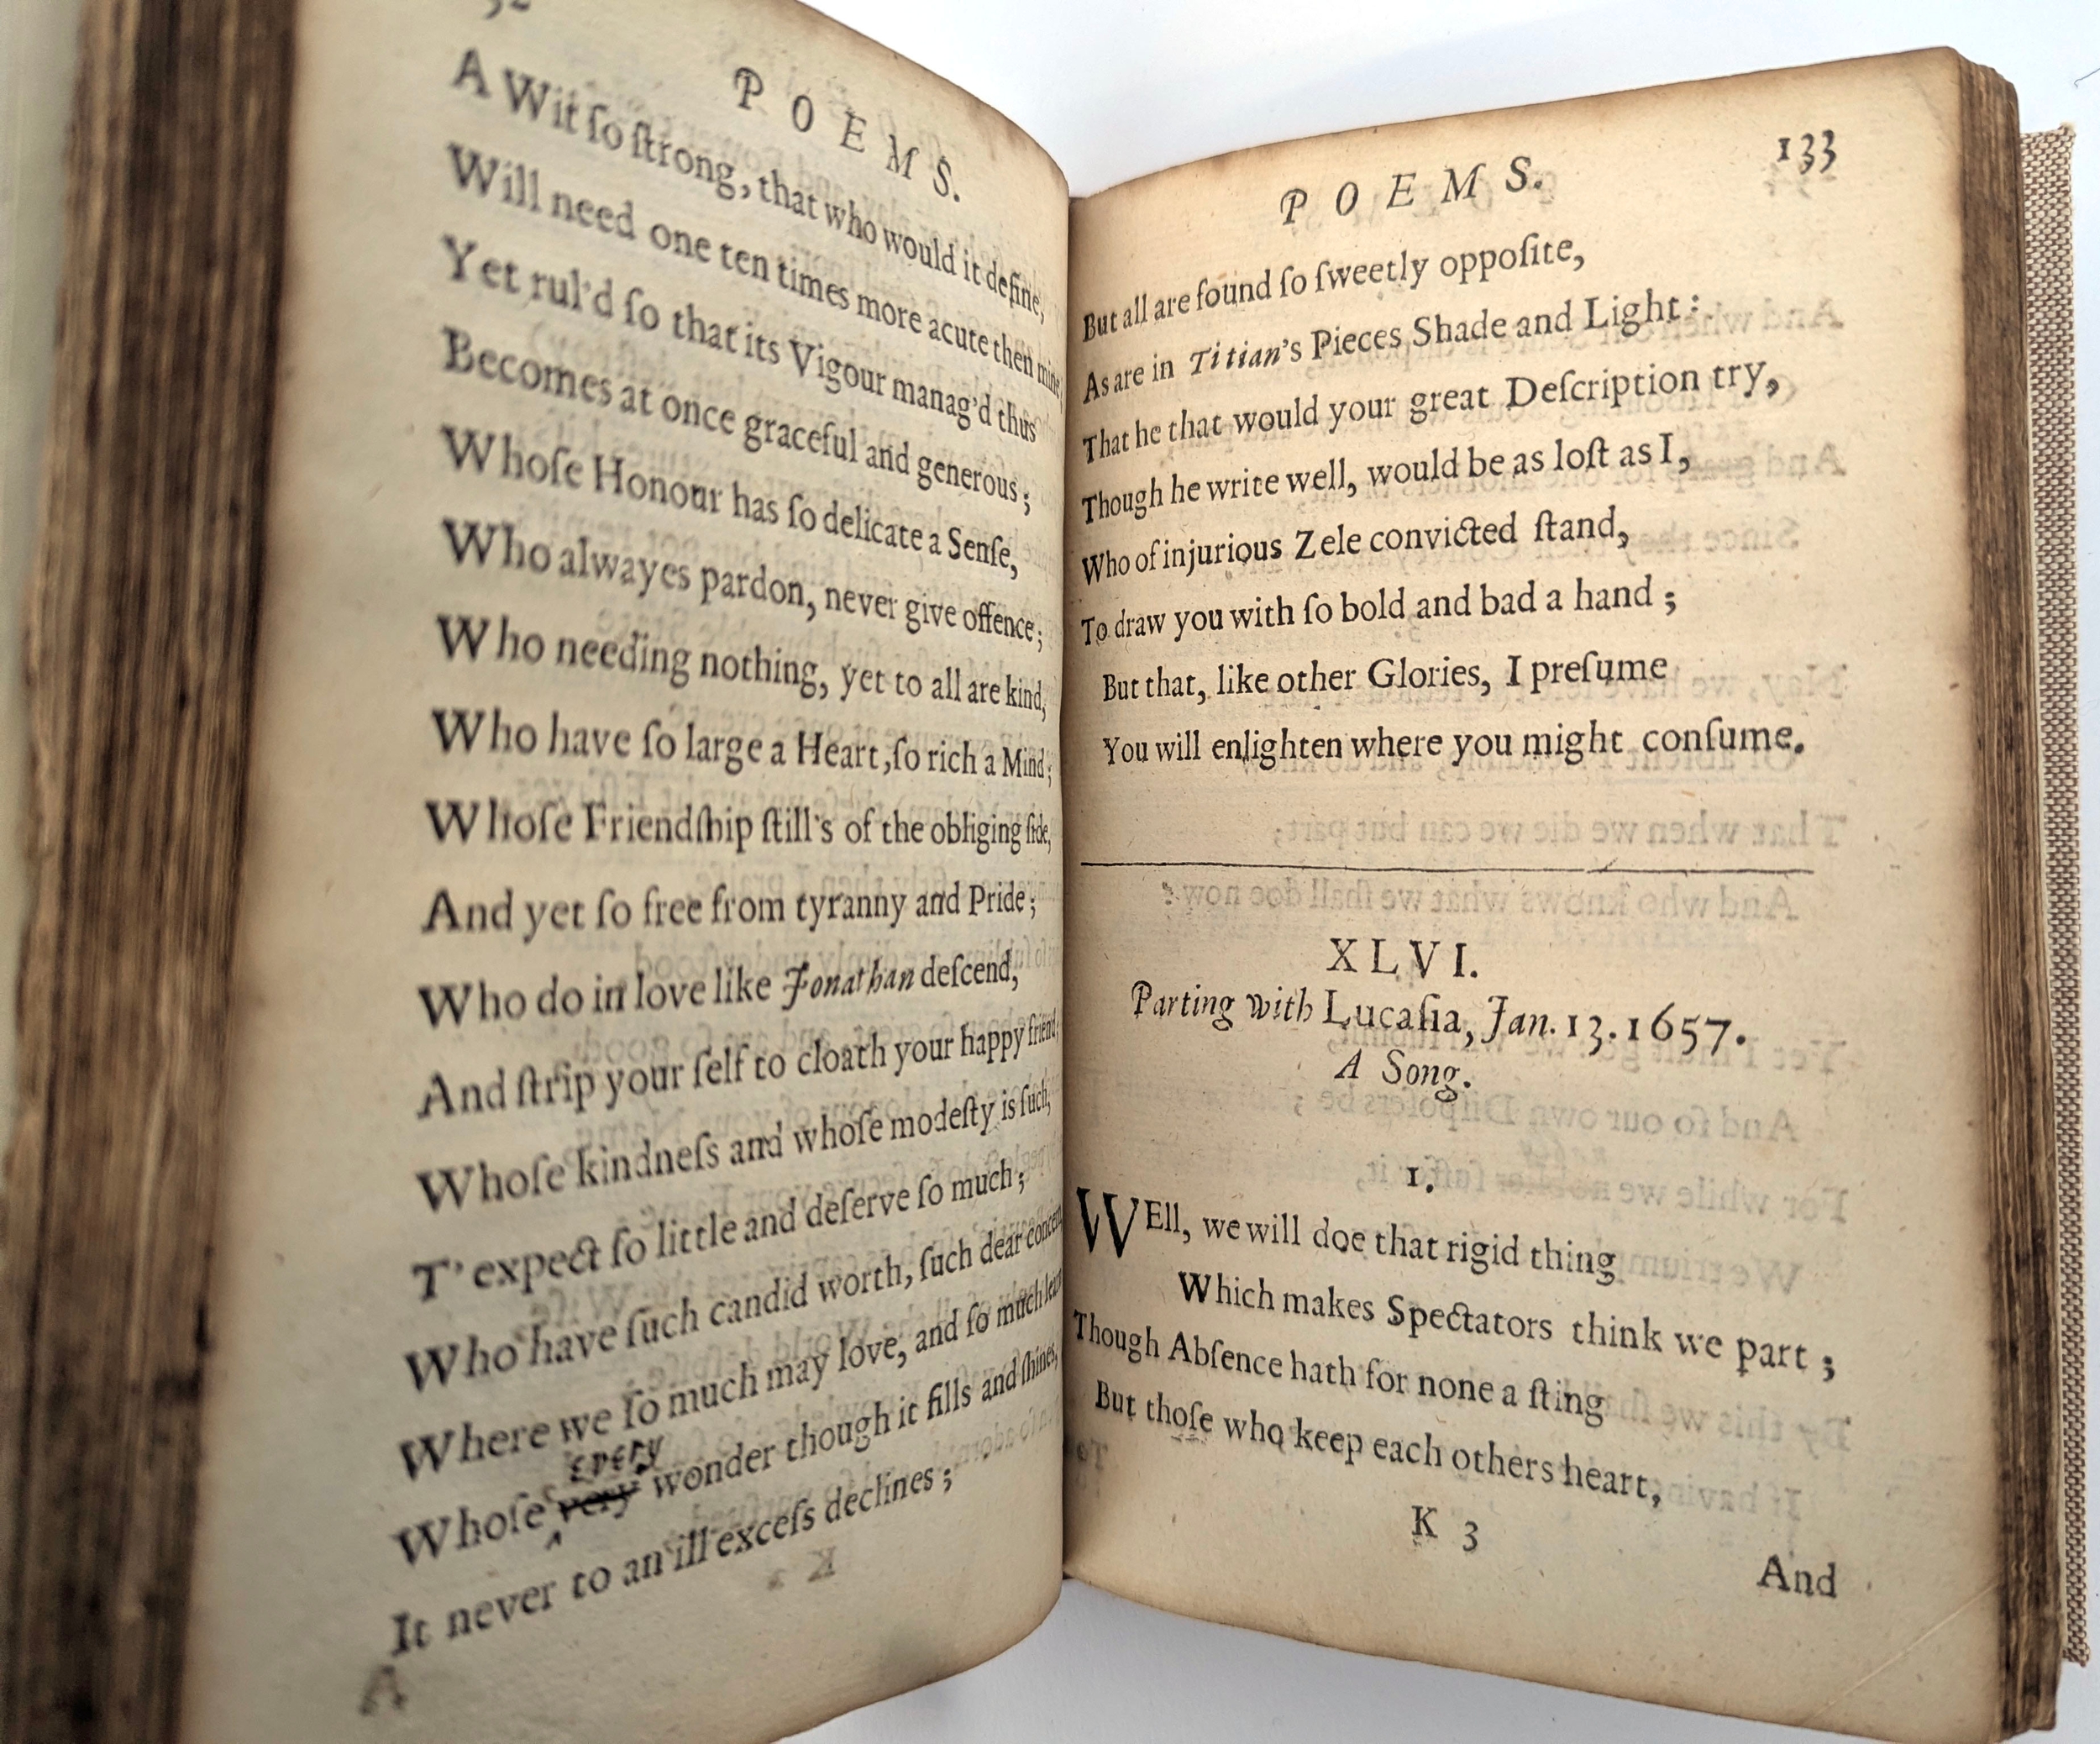 POEMS.
A Wit ſo ſtrong, that who would it define,
Will need one ten times more acute then mine;
Yet rul'd ſo that its Vigour manag'd thus
Becomes at once graceful and generous;
Whoſe Honour has ſo delicate a Senſe,
Who alwayes pardon, never give offence;
Who needing nothing, yet to all are kind,
Who have ſo large a Heart, ſo rich a Mind;
Whoſe Friendſhip ſtill's of the obliging ſide,
And yet ſo free from tyranny and Pride;
Who do in love like Jonathan deſcend,
And ſtrip your ſelf to cloath your happy friend;
Whoſe kindneſs and whoſe modeſty is ſuch,
T' expect ſo little and deſerve ſo much;
Who have ſuch candid worth, ſuch dear concern,
Where we ſo much may love, and ſo much learn
every
Whoſe very wonder though it fills and ſhines,
It never to an ill exceſs declines;
POEMS.
133
But all are found ſo ſweetly oppoſite,
As are in Titian's Pieces Shade and Light:
That he that would your great Deſcription try,
Though he write well, would be as loſt as I,
Who of injurious Zele convicted ſtand,
To draw you with ſo bold and bad a hand;
But that, like other Glories, I preſume
You will enlighten where you might conſume.
XLVI.
Parting with Lucaſia, Jan. 13. 1657.
A Song.
1.
WEll, we will doe that rigid thing
Which makes Spectators think we part;
Though Abſence hath for none a ſting
But thoſe who keep each others heart,
K 3
And